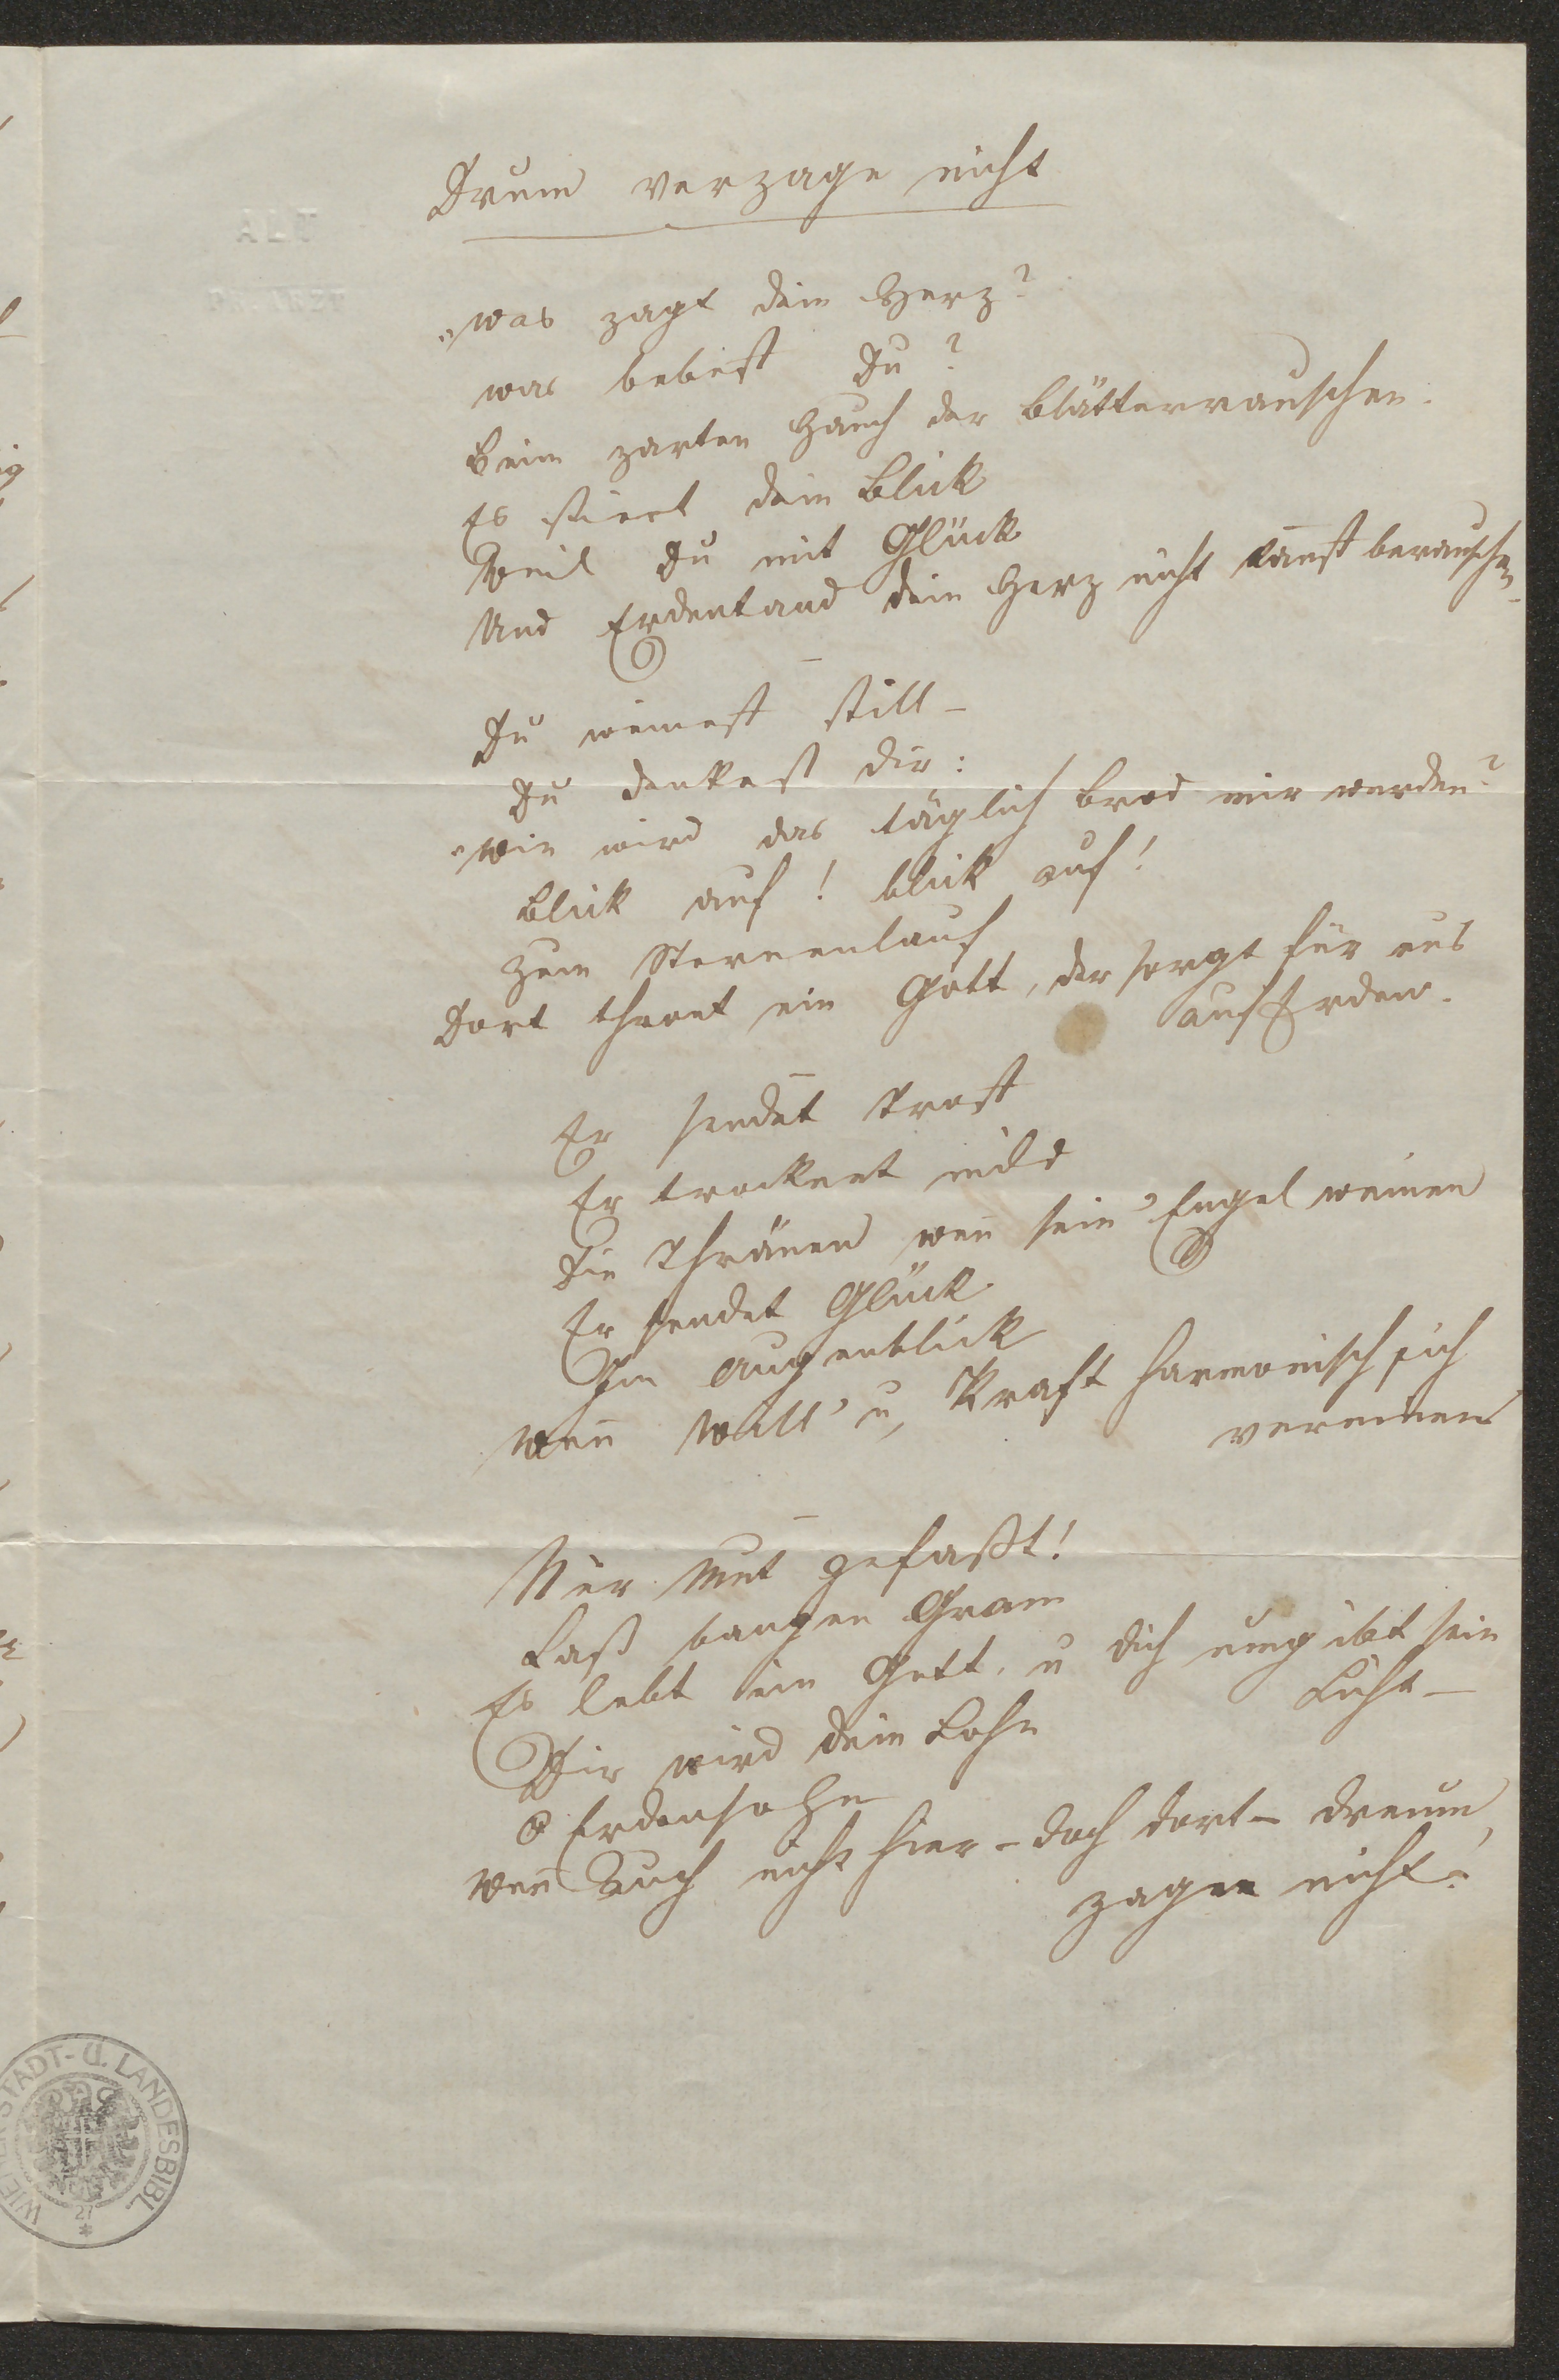 Drum verzage nicht
„Was zagt dein Herz?
was bebest Du?
Beim zarten Hauch der Blätterrauschen.
Es stiert dein Blick
Weil Du mit Glück
Und Erdentand dein Herz nicht kan̅st berauschen_
Du weinest still_
Du denkest dir:
„Wie wird das täglich Brod mir werden?
Blick auf! blick auf!
Zum Sternenlauf
Dort thront ein Gott, der sorgt für uns
auf Erden.
Er sendet Trost
Er trocknet mild
Die Thränen wen̅ sein' Engel weinen
Er sendet Glück
Im Augenblick
Wen̅ Will' u, Kraft harmonisch sich
vereinen
Nur Mut gefaßt!
Laß bangen Gram
Es lebt ein Gott, u dich umgibt sein
Licht_
Dir wird dein Lohn
O Erdensohn
Wen̅ Auch nicht hier – doch dort – drumm
zage nicht!
WIENER STADT- U. LANDESBIBL.
27